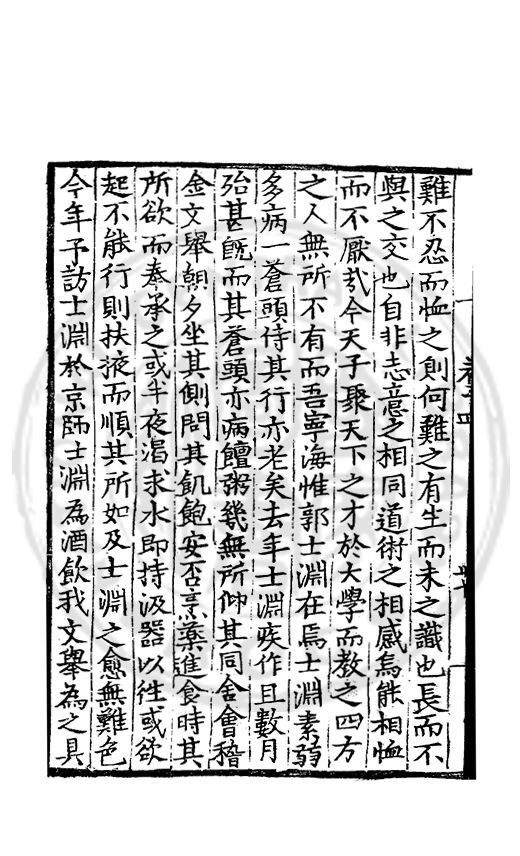 難不忍而恤之則何難之有生而未之識也長而不
與之交也自非志意之相同道術之相感焉能相恤
而不厭哉今天子聚天下之才於大學而教之四方
之人無所不有而吾寧海惟郭士淵在焉士淵素弱
多病一蒼頭侍其行亦老矣去年士淵疾作且數月
殆甚既而其蒼頭亦病饘粥幾無所仰其同舍會稽
金文舉朝夕坐其側問其飢飽安否烹藥進食時其
所欲而奉承之或半夜渴求水即持汲器以往或欲
起不能行則扶掖而順其所如及士淵之愈無難色
今年予訪士淵於京師士淵為酒飲我文舉為之具